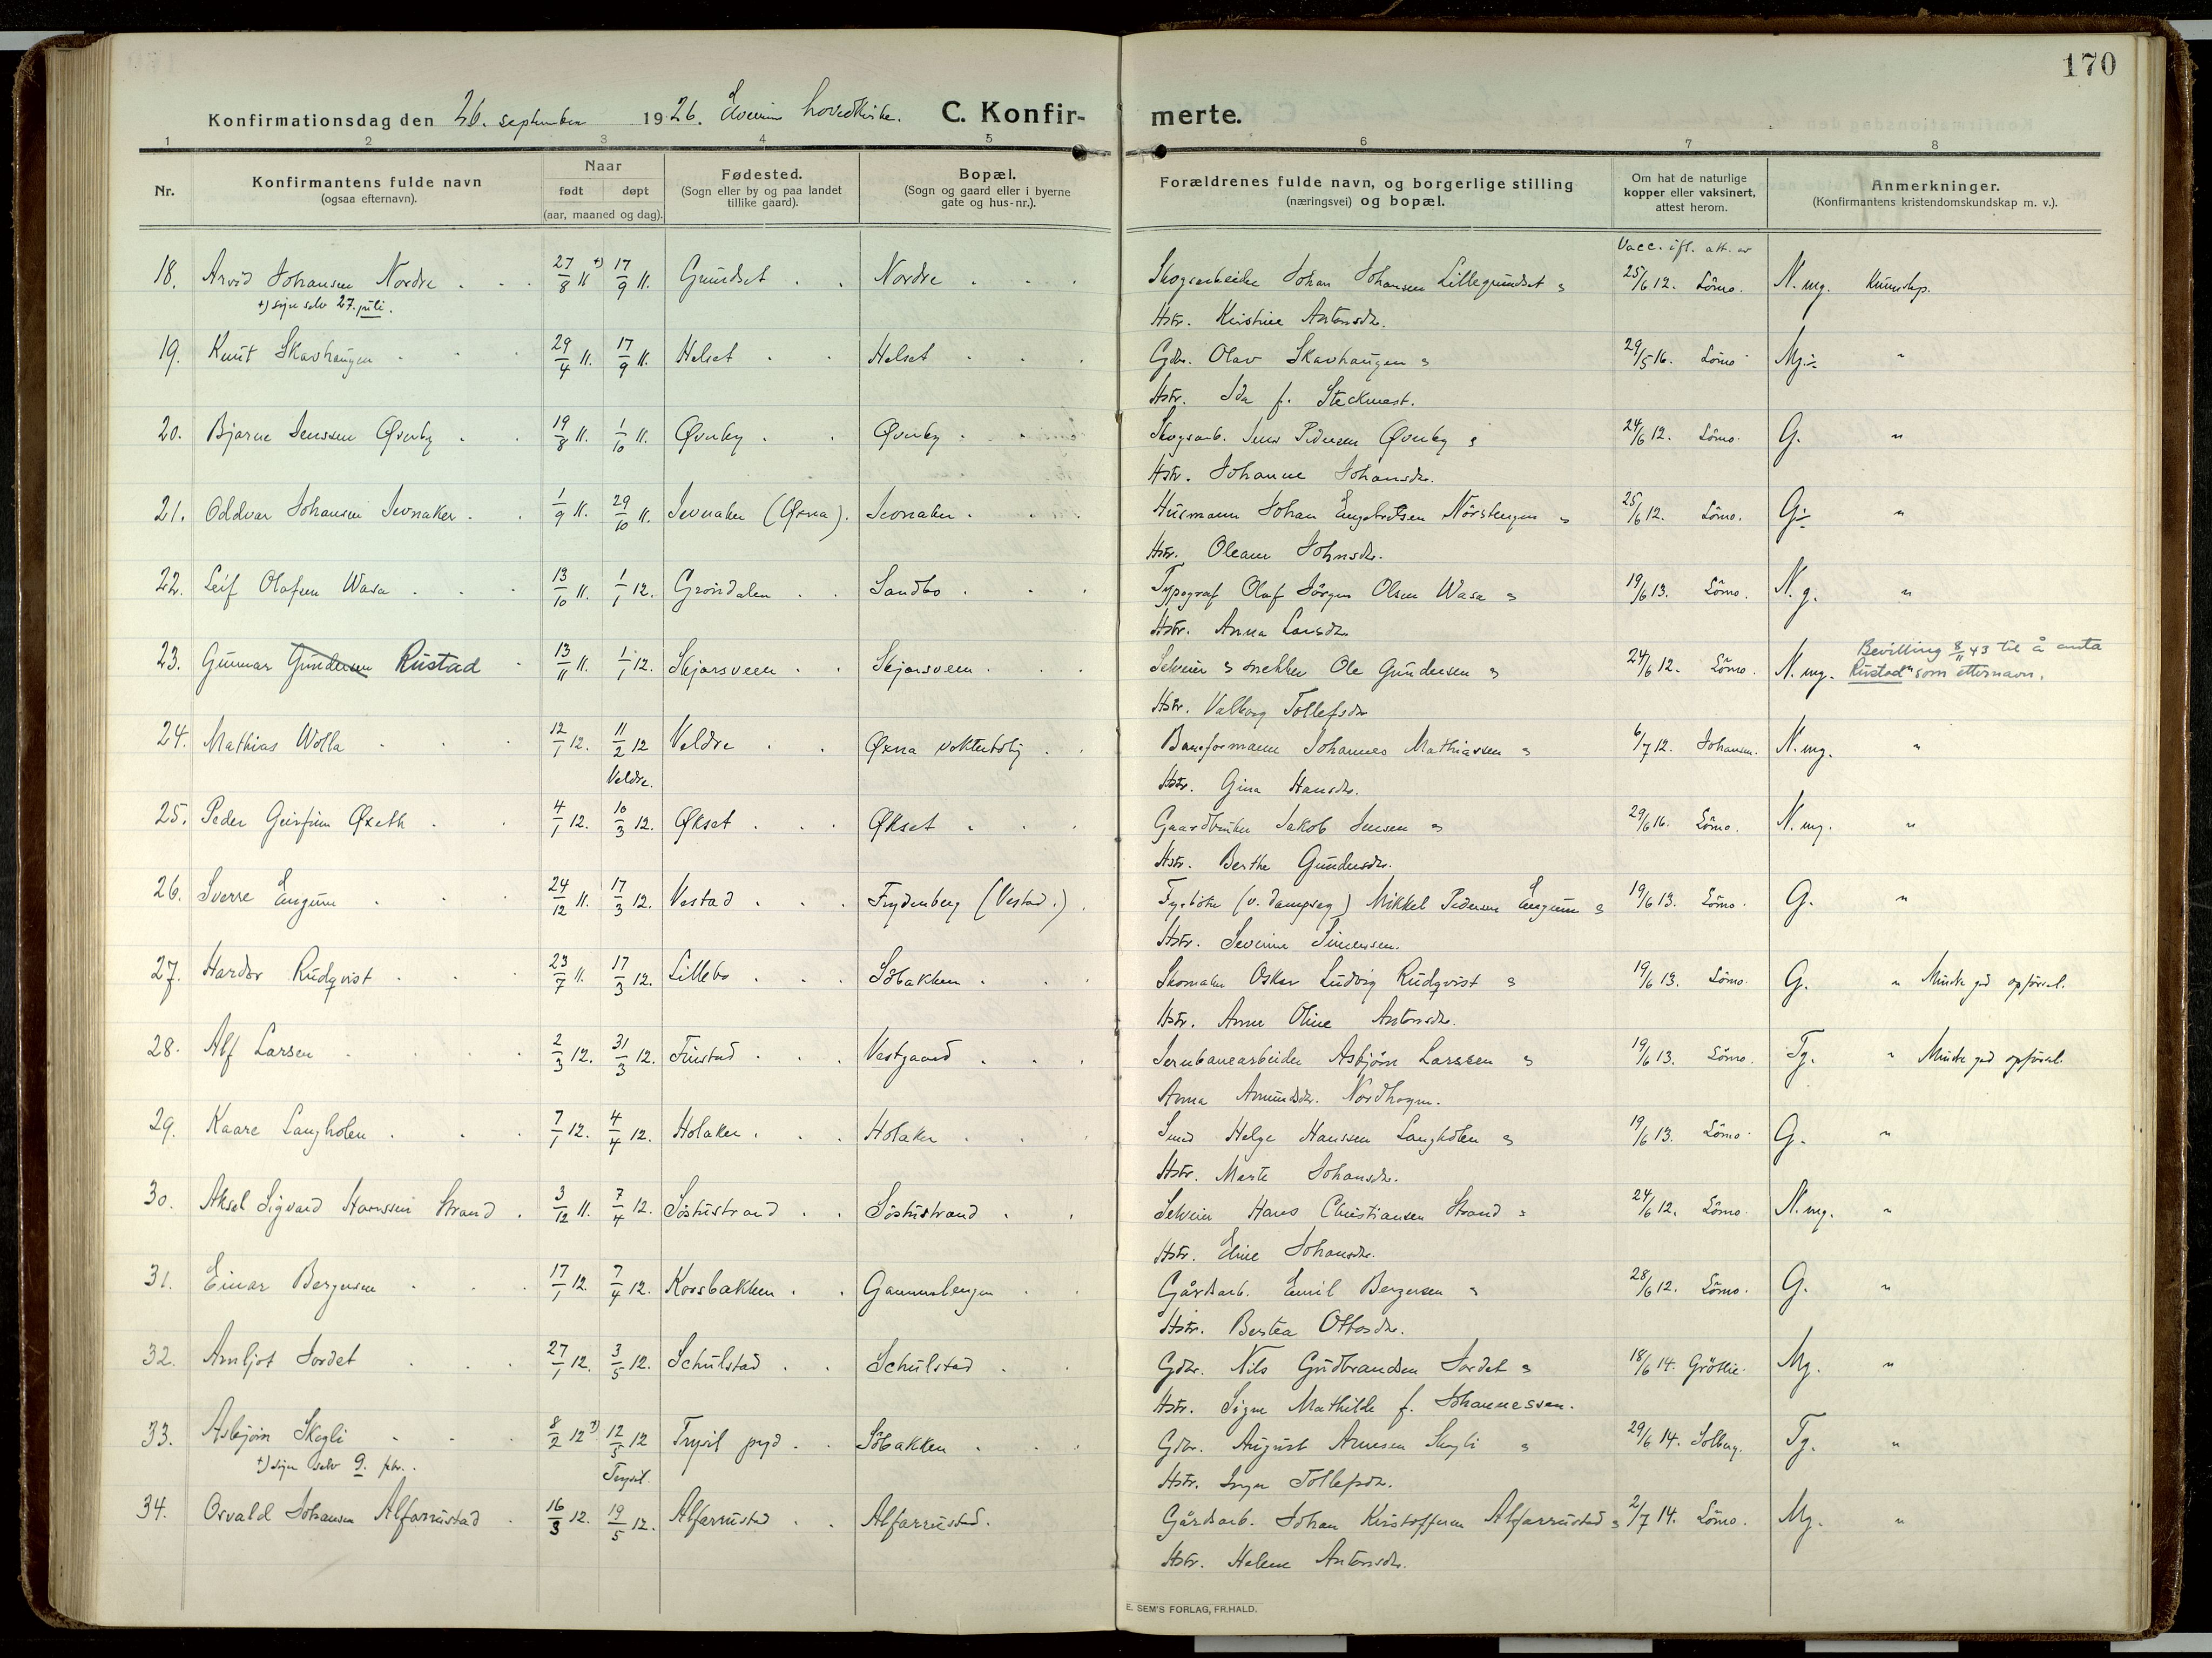 170
Konfirmationsdag den 26. september 1926. Elverum hovedkirke. C. Konfir- merte.
1 2 3 4 5 6 7 8
Nr.
Konfirmantens fulde navn
(ogsaa efternavn).
Naar
født døpt
(aar, maaned og dag).
Fødested.
(Sogn eller by og paa landet
tillike gaard).
Bopæl.
(Sogn og gaard eller i byerne
gate og hus-nr.).
Forældrenes fulde navn, og borgerlige stilling
(næringsvei) og bopæl.
Om hat de naturlige
kopper eller vaksinert,
attest herom.
Anmerkninger.
(Konfirmantens kristendomskundskap m. v.).
Vacc. ifl. att. av
18. Arvid Johansen Nordre 27/8 11 †) 17/9 11. Grundset Nordre Skogsarbeider Johan Johansen Lillegrundset & 25/6 12. Lömo. N. mg. Kunnskp.
†) siger selv 27. juli. Hstr. Kristine Antonsdr.
19. Knut Skavhaugen 29/4 11. 17/9 11. Helset Helset Gdbr. Olav Skavhaugen & 29/5 16. Lömo Mg. ÷ "
Hstr. Ida f. Steckmest.
20. Bjarne Jenssen Øverby 19/8 11. 1/10 11. Øverby Øverby Skogsarb. Jens Pedersen Øverby & 24/6 12. Lömo. G. "
Hstr. Johanne Johansdr.
21. Oddvar Johansen Jevnaker 1/9 11. 29/10 11. Jevnaker (Øxna). Jevnaker Husmann Johan Engebretsen Nörstengen & 25/6 12. Lömo. G ÷ "
Hstr. Oleane Johnsdr.
22. Leif Olafsen Wasa 13/10 11. 1/1 12. Gröndalen Sandbo Typograf Olaf Jörgen Olsen Wasa & 19/6 13. Lömo. N. g. "
Hstr. Anna Larsdr.
23. Gunnar Gundersen Rustad 13/11 11. 1/1 12. Skjærsveen Skjærsveen Selveier & snekker Ole Gundersen & 24/6 12. Lömo. N. mg. Bevilling 8/11 43 til å anta
Rustad" som etternavn.
Hstr. Valborg Tollefsdr
24. Mathias Wolla 12/1 12. 11/2 12 Veldre Øxna vokterbolig Baneformann Johannes Mathiassen & 6/7 12. Johansen. N. mg. "
Veldre. Hstr. Gina Hansdr.
25. Peder Geirfinn Øxeth 4/1 12. 10/3 12. Økset Økset Gaardbruker Jakob Jensen & 29/6 16. Lömo. N. mg. "
Hstr. Berthe Gundersdr.
26. Sverre Engum 24/12 11. 17/3 12. Vestad Frydenberg (Vestad.) Fyrböter (v. dampsag) Mikkel Pedersen Engum & 19/6 13. Lömo. G. "
Hstr. Severine Simensen.
27. Hardor Rudqvist 23/7 11. 17/3 12. Lillebo Söbakken Skomaker Oskar Ludvig Rudqvist & 19/6 13. Lömo. G. " Mindre god opförsel.
Hstr. Anne Oline Antonsdr.
28. Alf Larsen 2/3 12. 31/3 12. Finstad Vestgaard Jernbanearbeider Asbjörn Larssen & 19/6 13. Lömo. Tg. " Mindre god opförsel.
Anna Amundsdr. Nordhagen.
29. Kaare Langholen 7/1 12. 4/4 12. Holaker Holaker Smed Helge Hanssen Langholen & 19/6 13. Lömo G. "
Hstr. Marte Johansdr.
30. Aksel Sigvard Hanssen Strand 3/12 11. 7/4 12. Söstustrand Söstustrand Selveier Hans Christiansen Strand & 24/6 12. Lömo. N. mg. "
Hstr. Eline Johansdr.
31. Einar Bergersen 17/1 12. 7/4 12. Korsbakken Gammelengen Gårdsarb. Emil Bergersen & 28/6 12. Lömo. G. "
Hstr. Bertea Ottosdr.
32. Arnljot Jordet 27/1 12. 3/5 12. Schulstad Schulstad Gdbr. Nils Gudbrandsen Jordet & 18/6 14. Gröttie. Mg. "
Hstr. Signe Mathilde f. Johannessen.
33. Asbjörn Skogli 8/2 12 †) 12/5 12 Trysil pgd. Söbakken Gdbr. August Arnesen Skogli & 29/6 14. Solberg. Tg. "
†) siger selv 9. febr. Trysil. Hstr. Inga Tollefsdr.
34. Osvald Johansen Alfarrustad 16/3 12. 19/5 12. Alfarrustad Alfarrustad. Gårdsarb. Johan Kristoffersen Alfarrustad & 2/7 14. Lömo. Mg. "
Hstr. Helene Antonsdr.
E. SEM'S FORLAG, FR.HALD.